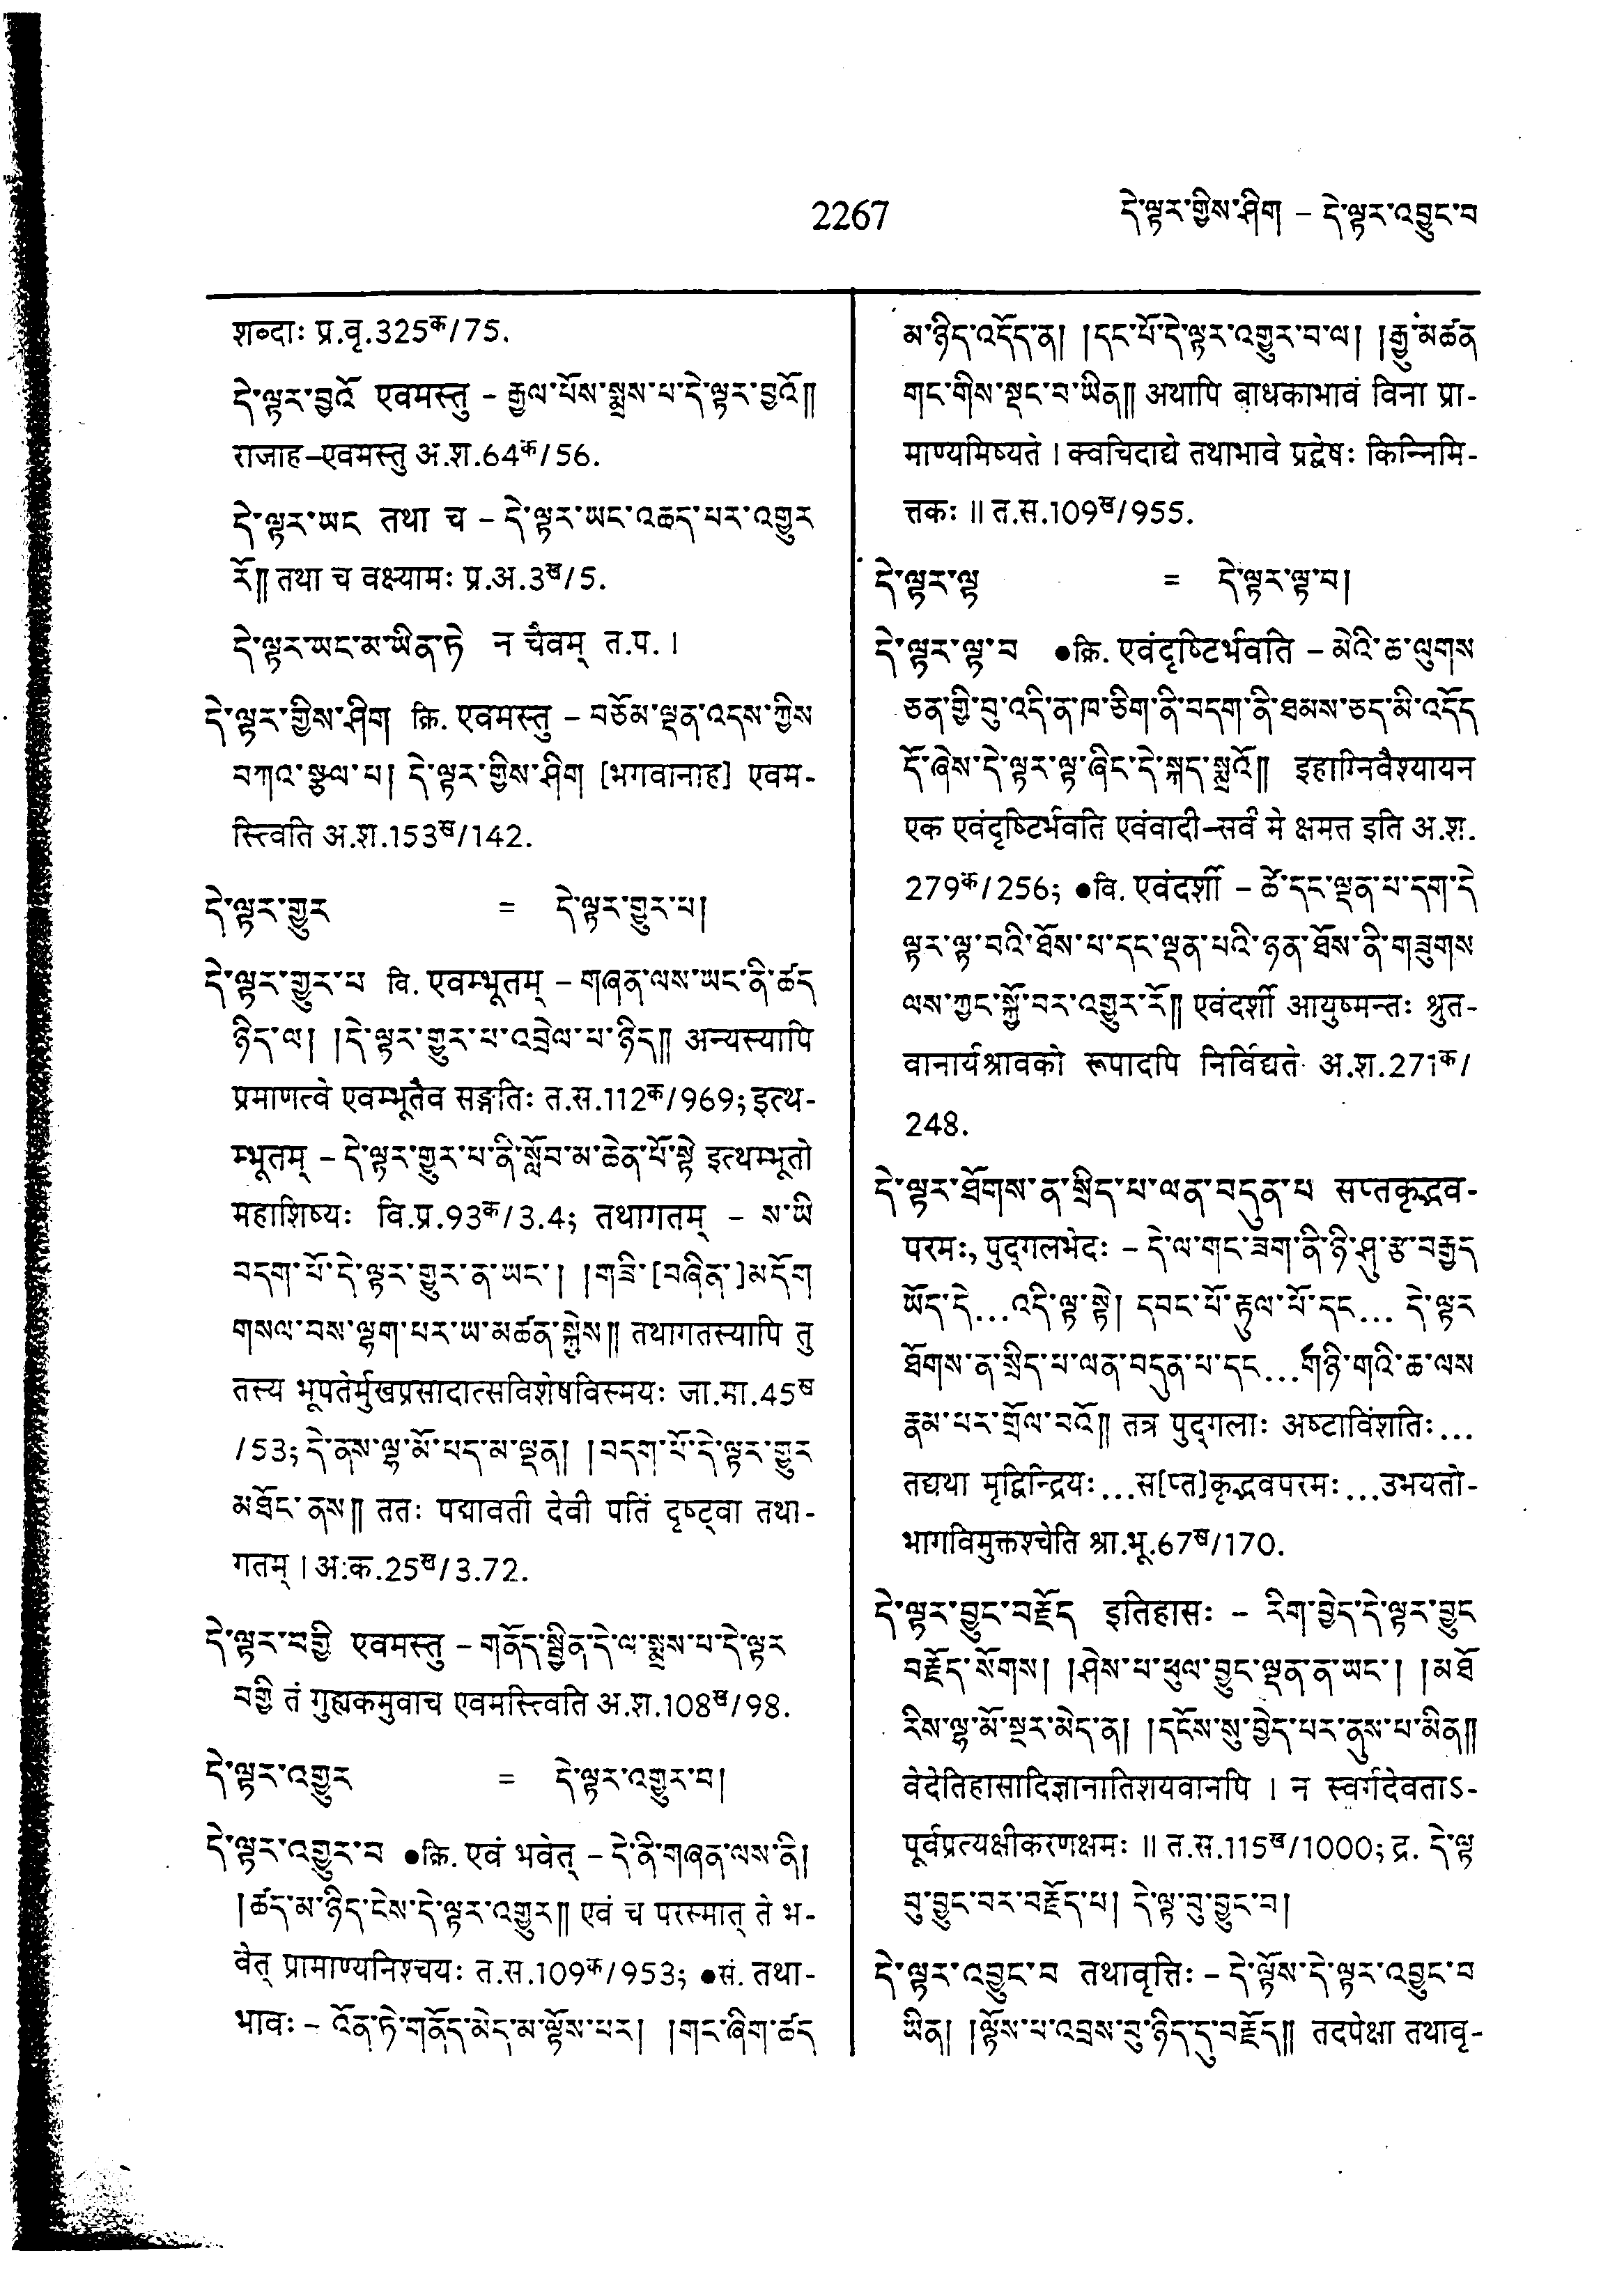 2267
དེ་ལྟར་གྱིས་ཤིག – དེ་ལྟར་འབྱུང་བ
शब्दाः प्र.वृ.325क/75.
དེ་ལྟར་བྱའོ एवमस्तु – རྒྱལ་པོས་སྨྲས་པ་དེ་ལྟར་བྱའོ༎
राजाह–एवमस्तु अ.श.64क/56.
དེ་ལྟར་ཡང तथा च – དེ་ལྟར་ཡང་འཆད་པར་འགྱུར
རོ༎ तथा च वक्ष्यामः प्र.अ.3ख/5.
དེ་ལྟར་ཡང་མ་ཡིན་ཏེ न चैवम् त.प. ।
དེ་ལྟར་གྱིས་ཤིག क्रि. एवमस्तु – བཅོམ་ལྡན་འདས་ཀྱིས
བཀའ་སྩལ་པ། དེ་ལྟར་གྱིས་ཤིག [भगवानाह] एवम-
स्त्विति अ.श.153ख/142.
དེ་ལྟར་གྱུར = དེ་ལྟར་གྱུར་པ།
དེ་ལྟར་གྱུར་པ वि. एवम्भूतम् – གཞན་ལས་ཡང་ནི་ཚད
ཉིད་ལ། །དེ་ལྟར་གྱུར་པ་འབྲེལ་པ་ཉིད༎ अन्यस्यापि
प्रमाणत्वे एवम्भूतैव सङ्गतिः त.स.112क/969; इत्थ-
म्भूतम् – དེ་ལྟར་གྱུར་པ་ནི་སློབ་མ་ཆེན་པོ་སྟེ इत्थम्भूतो
महाशिष्यः वि.प्र.93क/3.4; तथागतम् – ས་ཡི
བདག་པོ་དེ་ལྟར་གྱུར་ན་ཡང་། །གཟི་[བཞིན་]མདོག
གསལ་བས་ལྷག་པར་ཡ་མཚན་སྐྱེས༎ तथागतस्यापि तु
तस्य भूपतेर्मुखप्रसादात्सविशेषविस्मयः जा.मा.45ख
/53; དེ་ནས་ལྷ་མོ་པད་མ་ལྡན། །བདག་པོ་དེ་ལྟར་གྱུར
མཐོང་ནས༎ ततः पद्मावती देवी पतिं दृष्ट्वा तथा-
गतम् । अ.क.25ख/3.72.
དེ་ལྟར་བགྱི एवमस्तु – གནོད་སྦྱིན་དེ་ལ་སྨྲས་པ་དེ་ལྟར
བགྱི तं गुह्यकमुवाच एवमस्त्विति अ.श.108ख/98.
དེ་ལྟར་འགྱུར = དེ་ལྟར་འགྱུར་བ།
དེ་ལྟར་འགྱུར་བ ●क्रि. एवं भवेत् – དེ་ནི་གཞན་ལས་ནི།
།ཚད་མ་ཉིད་ངེས་དེ་ལྟར་འགྱུར༎ एवं च परस्मात् ते भ-
वेत् प्रामाण्यनिश्चयः त.स.109क/953; ●सं. तथा-
भावः – འོན་ཏེ་གནོད་མེད་མ་ལྟོས་པར། །གང་ཞིག་ཚད
མ་ཉིད་འདོད་ན། །དང་པོ་དེ་ལྟར་འགྱུར་བ་ལ། །རྒྱུ་མཚན
གང་གིས་སྡང་བ་ཡིན༎ अथापि बाधकाभावं विना प्रा-
माण्यमिष्यते । क्वचिदाद्ये तथाभावे प्रद्वेषः किन्निमि-
त्तकः ॥ त.स.109ख/955.
དེ་ལྟར་ལྟ = དེ་ལྟར་ལྟ་བ།
དེ་ལྟར་ལྟ་བ ●क्रि. एवंदृष्टिर्भवति – མེའི་ཆ་ལུགས
ཅན་གྱི་བུ་འདི་ན་ཁ་ཅིག་ནི་བདག་ནི་ཐམས་ཅད་མི་འདོད
དོ་ཞེས་དེ་ལྟར་ལྟ་ཞིང་དེ་སྐད་སྨྲའོ༎ इहाग्निवैश्यायन
एक एवंदृष्टिर्भवति एवंवादी–सर्वं मे क्षमत इति अ.श.
279क/256; ●वि. एवंदर्शी – ཚེ་དང་ལྡན་པ་དག་དེ
ལྟར་ལྟ་བའི་ཐོས་པ་དང་ལྡན་པའི་ཉན་ཐོས་ནི་གཟུགས
ལས་ཀྱང་སྐྱོ་བར་འགྱུར་རོ༎ एवंदर्शी आयुष्मन्तः श्रुत-
वानार्यश्रावको रूपादपि निर्विद्यते अ.श.271क/
248.
དེ་ལྟར་ཐོགས་ན་སྲིད་པ་ལན་བདུན་པ सप्तकृद्भव-
परमः, पुद्गलभेदः – དེ་ལ་གང་ཟག་ནི་ཉི་ཤུ་རྩ་བརྒྱད
ཡོད་དེ...འདི་ལྟ་སྟེ། དབང་པོ་རྟུལ་པོ་དང... དེ་ལྟར
ཐོགས་ན་སྲིད་པ་ལན་བདུན་པ་དང...གཉི་གའི་ཆ་ལས
རྣམ་པར་གྲོལ་བའོ༎ तत्र पुद्गलाः अष्टाविंशतिः...
तद्यथा मृद्विन्द्रियः...स[प्त]कृद्भवपरमः...उभयतो-
भागविमुक्तश्चेति श्रा.भू.67ख/170.
དེ་ལྟར་བྱུང་བརྗོད इतिहासः – རིག་བྱེད་དེ་ལྟར་བྱུང
བརྗོད་སོགས། །ཤེས་པ་ཕུལ་བྱུང་ལྡན་ན་ཡང་། །མཐོ
རིས་ལྷ་མོ་སྔར་མེད་ན། །དངོས་སུ་བྱེད་པར་ནུས་པ་མིན༎
वेदेतिहासादिज्ञानातिशयवानपि । न स्वर्गदेवताऽ-
पूर्वप्रत्यक्षीकरणक्षमः ॥ त.स.115ख/1000; द्र. དེ་ལྟ
བུ་བྱུང་བར་བརྗོད་པ། དེ་ལྟ་བུ་བྱུང་བ།
དེ་ལྟར་འབྱུང་བ तथावृत्तिः – དེ་ལྟོས་དེ་ལྟར་འབྱུང་བ
ཡིན། །ལྟོས་པ་འབྲས་བུ་ཉིད་དུ་བརྗོད༎ तदपेक्षा तथावृ-